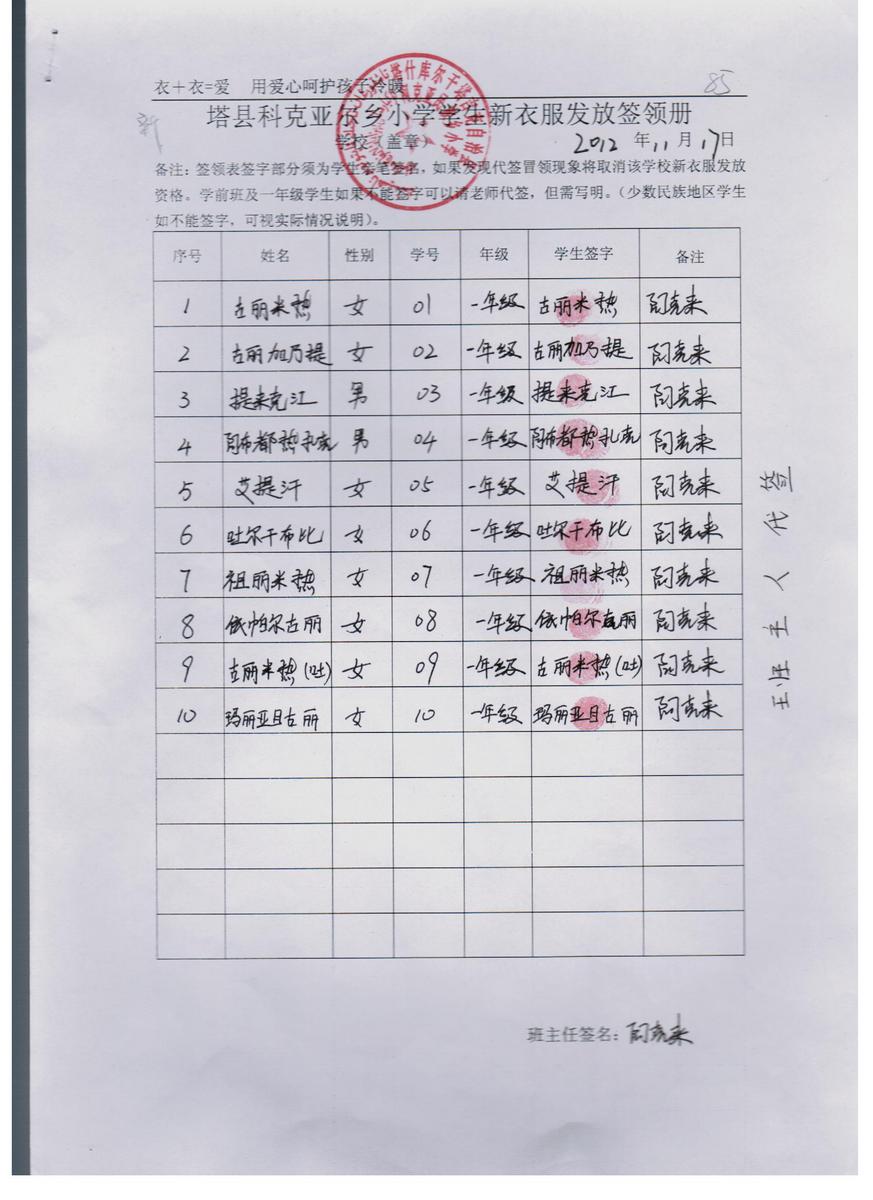 衣＋衣=爱 用爱心呵护孩子冷暖
85
新
塔县科克亚尔乡小学学生新衣服发放签领册
学校（盖章） 2012 年 11 月 17 日
备注：签领表签字部分须为学生亲笔签名，如果发现代签冒领现象将取消该学校新衣服发放
资格。学前班及一年级学生如果不能签字可以请老师代签，但需写明。（少数民族地区学生
如不能签字，可视实际情况说明）。
序号 姓名 性别 学号 年级 学生签字 备注
1 古丽米热 女 01 一年级 古丽米热
2 古丽加乃提 女 02 一年级 古丽加乃提
3 提来克江 男 03 一年级 提来克江
4 男 04 一年级
5 艾提汗 女 05 一年级 艾提汗
6 吐尔干布比 女 06 一年级 吐尔干布比
7 祖丽米热 女 07 一年级 祖丽米热
8 依帕尔古丽 女 08 一年级 依帕尔古丽
9 古丽米热(吐) 女 09 一年级 古丽米热(吐)
10 玛丽亚目古丽 女 10 一年级 玛丽亚目古丽
班主任签名：